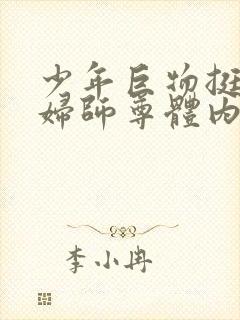 少年巨物挺
婦師尊體內
李小冉